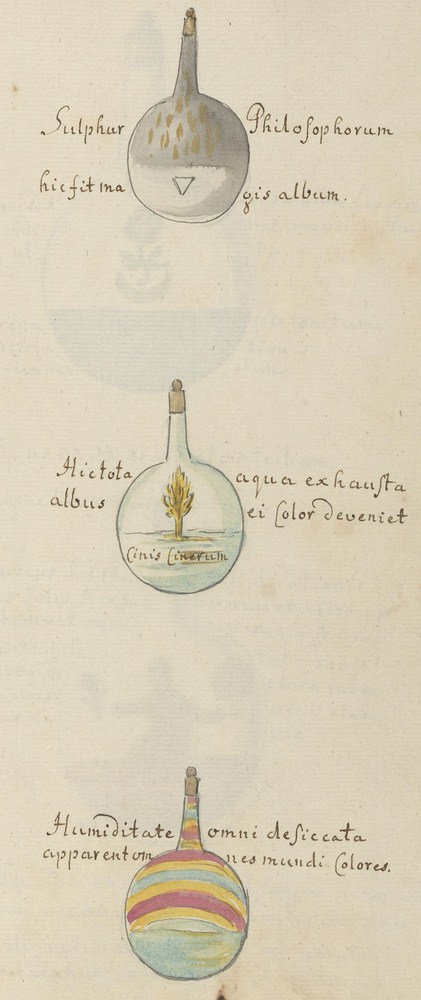 Sulphur Philosophorum
hic fit ma gis album.
Hic tota aqua exhausta
albus ei Color deveniet
Cinis Cinerum
Humiditate omni desiccata
apparent om nes mundi Colores.